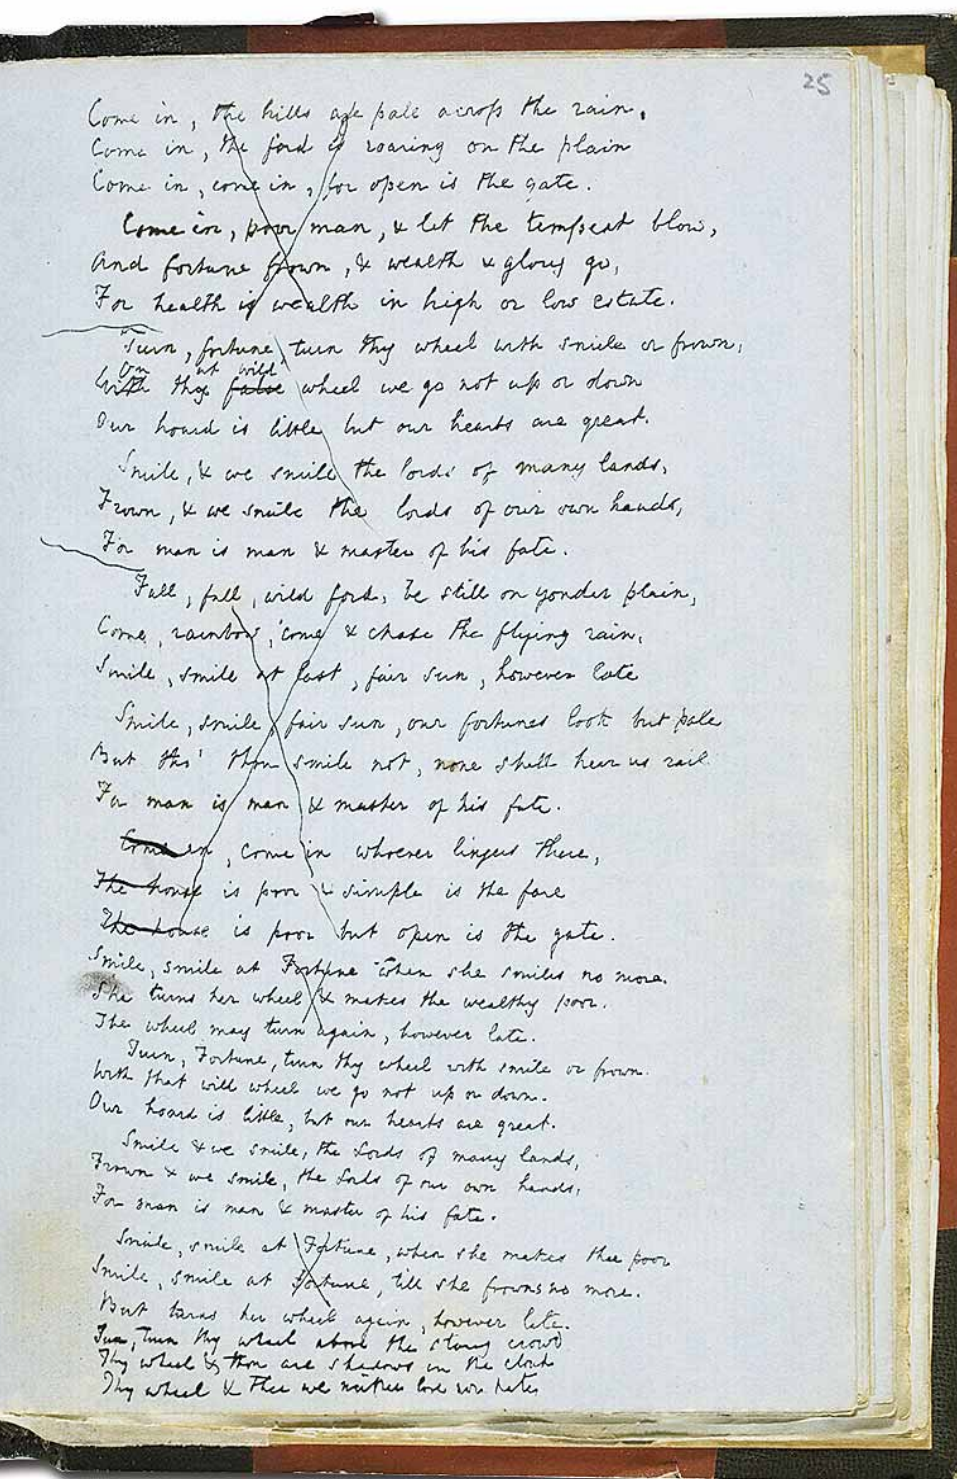 25
Come in, the hills are pale across the rain,
Come in, the ford is roaring on the plain
Come in, come in, for open is the gate.
Come in, poor man, & let the tempest blow,
And fortune frown, & wealth & glory go,
For health is wealth in high or low estate.
Turn, fortune, turn thy wheel with smile or frown,
On at wild
With thy false wheel we go not up or down
Our hoard is little but our hearts are great.
Smile, & we smile the lords of many lands,
Frown, & we smile the lords of our own hands,
For man is man & master of his fate.
Fall, fall, wild ford, be still on yonder plain,
Come, rainbow, come & chase the flying rain,
Smile, smile at last, fair sun, however late
Smile, smile, fair sun, our fortunes look but pale
But tho' thou smile not, none shall hear us rail
For man is man & master of his fate.
Come in, come in whoever lingers there,
The house is poor & simple is the fare
The house is poor but open is the gate.
Smile, smile at Fortune when she smiles no more.
She turns her wheel & makes the wealthy poor.
The wheel may turn again, however late.
Turn, Fortune, turn thy wheel with smile or frown.
With that wild wheel we go not up or down.
Our hoard is little, but our hearts are great.
Smile & we smile, the Lords of many lands,
Frown & we smile, the Lords of our own hands,
For man is man & master of his fate.
Smile, smile at Fortune, when she makes thee poor
Smile, smile at fortune, till she frowns no more.
But turns her wheel again, however late.
Turn, turn thy wheel above the staring crowd
Thy wheel & thou are shadows in the cloud
Thy wheel & thee we neither love nor hate